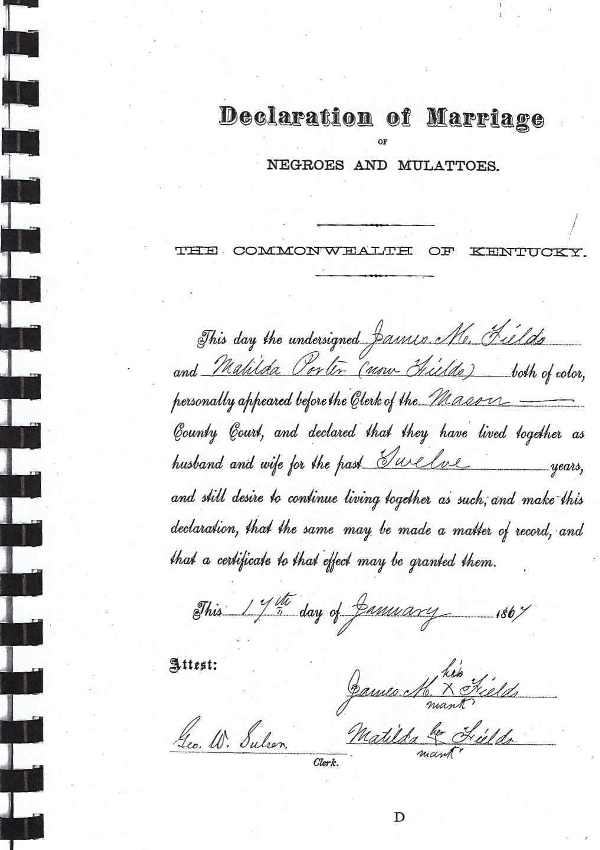 Declaration of Marriage
OF
NEGROES AND MULATTOES.
THE COMMONWEALTH OF KENTUCKY.
This day the undersigned James M. Fields
and Matilda Porter (now Fields) both of color,
personally appeared before the Clerk of the Mason
County Court, and declared that they have lived together as
husband and wife for the past Twelve years,
and still desire to continue living together as such, and make this
declaration, that the same may be made a matter of record, and
that a certificate to that effect may be granted them.
This 17th day of January 1867
Attest:
his
James M. X Fields
mark
Geo. W. Sulser. Matilda her Fields
mark
Clerk.
D